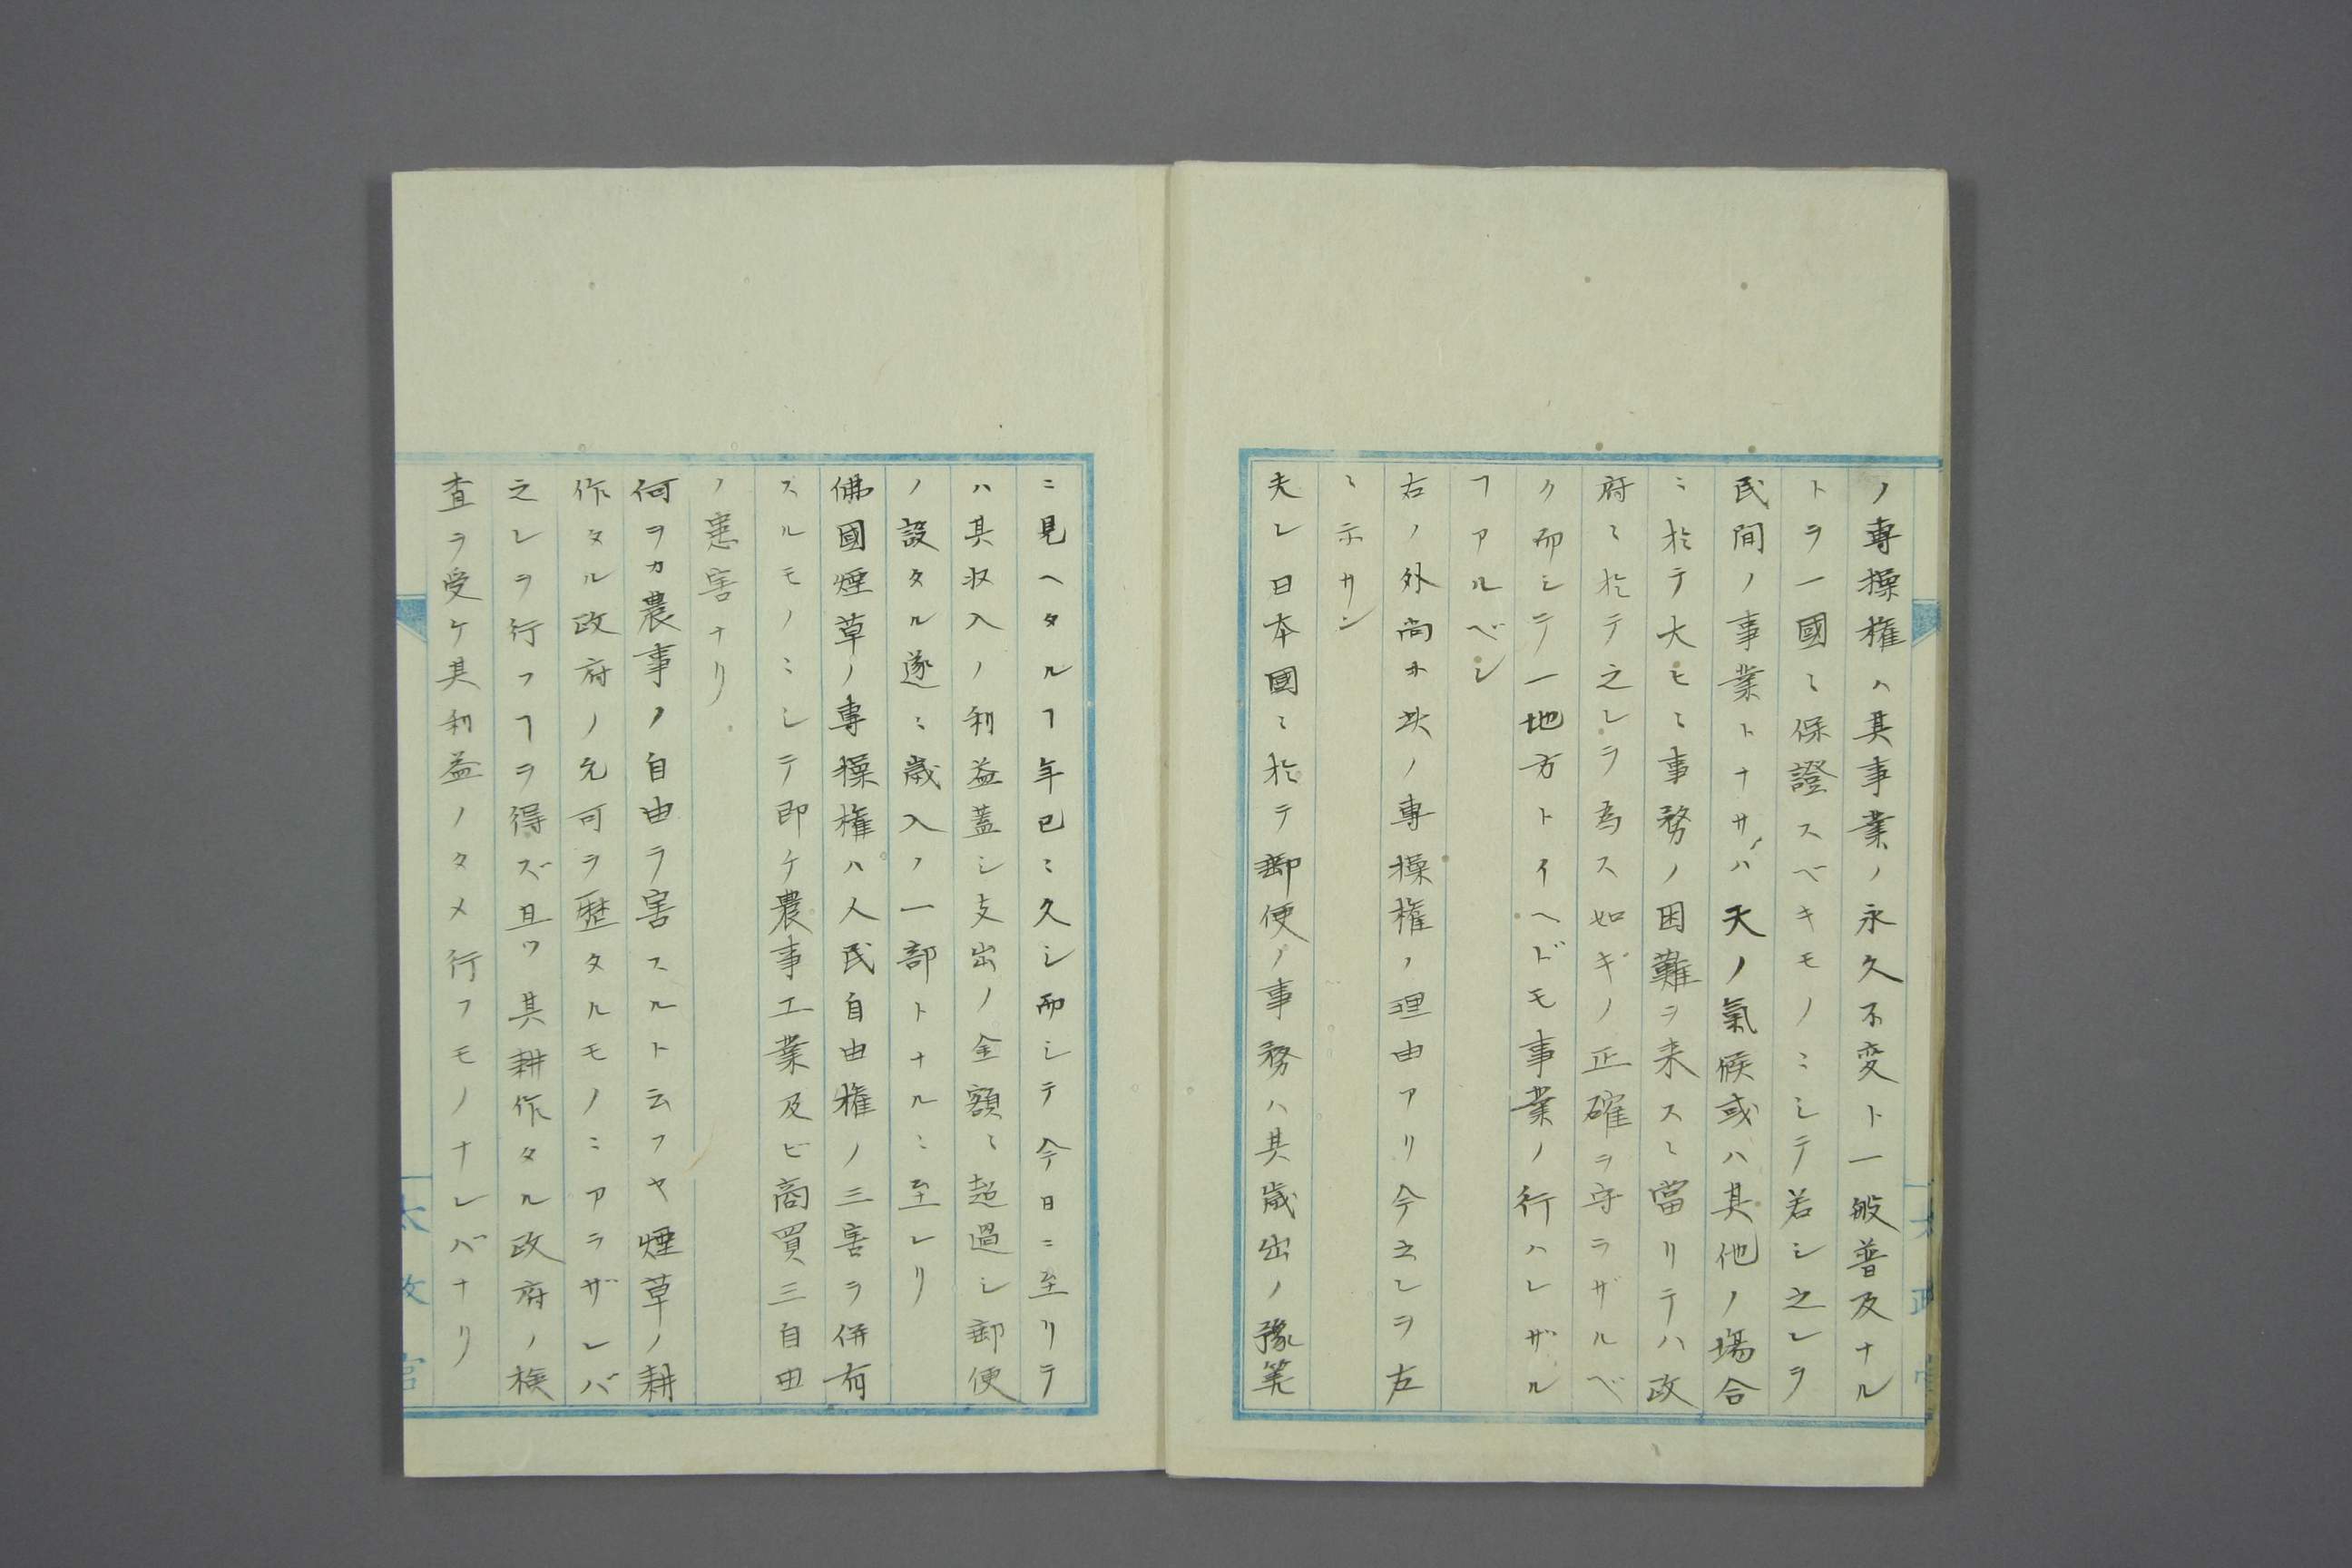 ノ專操権ハ其事業ノ永久不変ト一般普及ナル
トヲ一國ニ保證スベキモノニシテ若シ之レヲ
民間ノ事業トナサバ天ノ氣候或ハ其他ノ塲合
ニ於テ大モニ事務ノ困難ヲ来スニ當リテハ政
府ニ於テ之レヲ為ス如ギノ正確ヲ守ラザルベ
ク而シテ一地方トイヘドモ事業ノ行ハレザル
ヿアルベシ
右ノ外尚ホ次ノ專操権ノ理由アリ今之レヲ左
ニ示サン
夫レ日本國ニ於テ郵便ノ事務ハ其歳出ノ豫筭
ニ見ヘタルヿ年已ニ久シ而シテ今日ニ至リテ
ハ其収入ノ利益蓋シ支出ノ全額ニ超過シ郵便
ノ設タル遂ニ歳入ノ一部トナルニ至レリ
佛國煙草ノ專操権ハ人民自由権ノ三害ヲ併有
スルモノニシテ即ケ農事工業及ビ商買三自由
ノ害ナリ
何ヲカ農事ノ自由ヲ害スルト云フヤ煙草ノ耕
作タル政府ノ允可ヲ歴タルモノニアラザレバ
之レヲ行フヿヲ得ズ且ツ其耕作タル政府ノ検
査ヲ受ケ其利益ノタメ行フモノナレバナリ
太政官